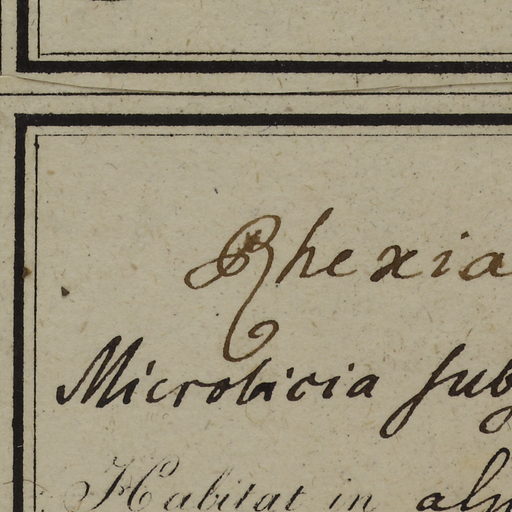 Rhexia
Microlicia
Habitat in